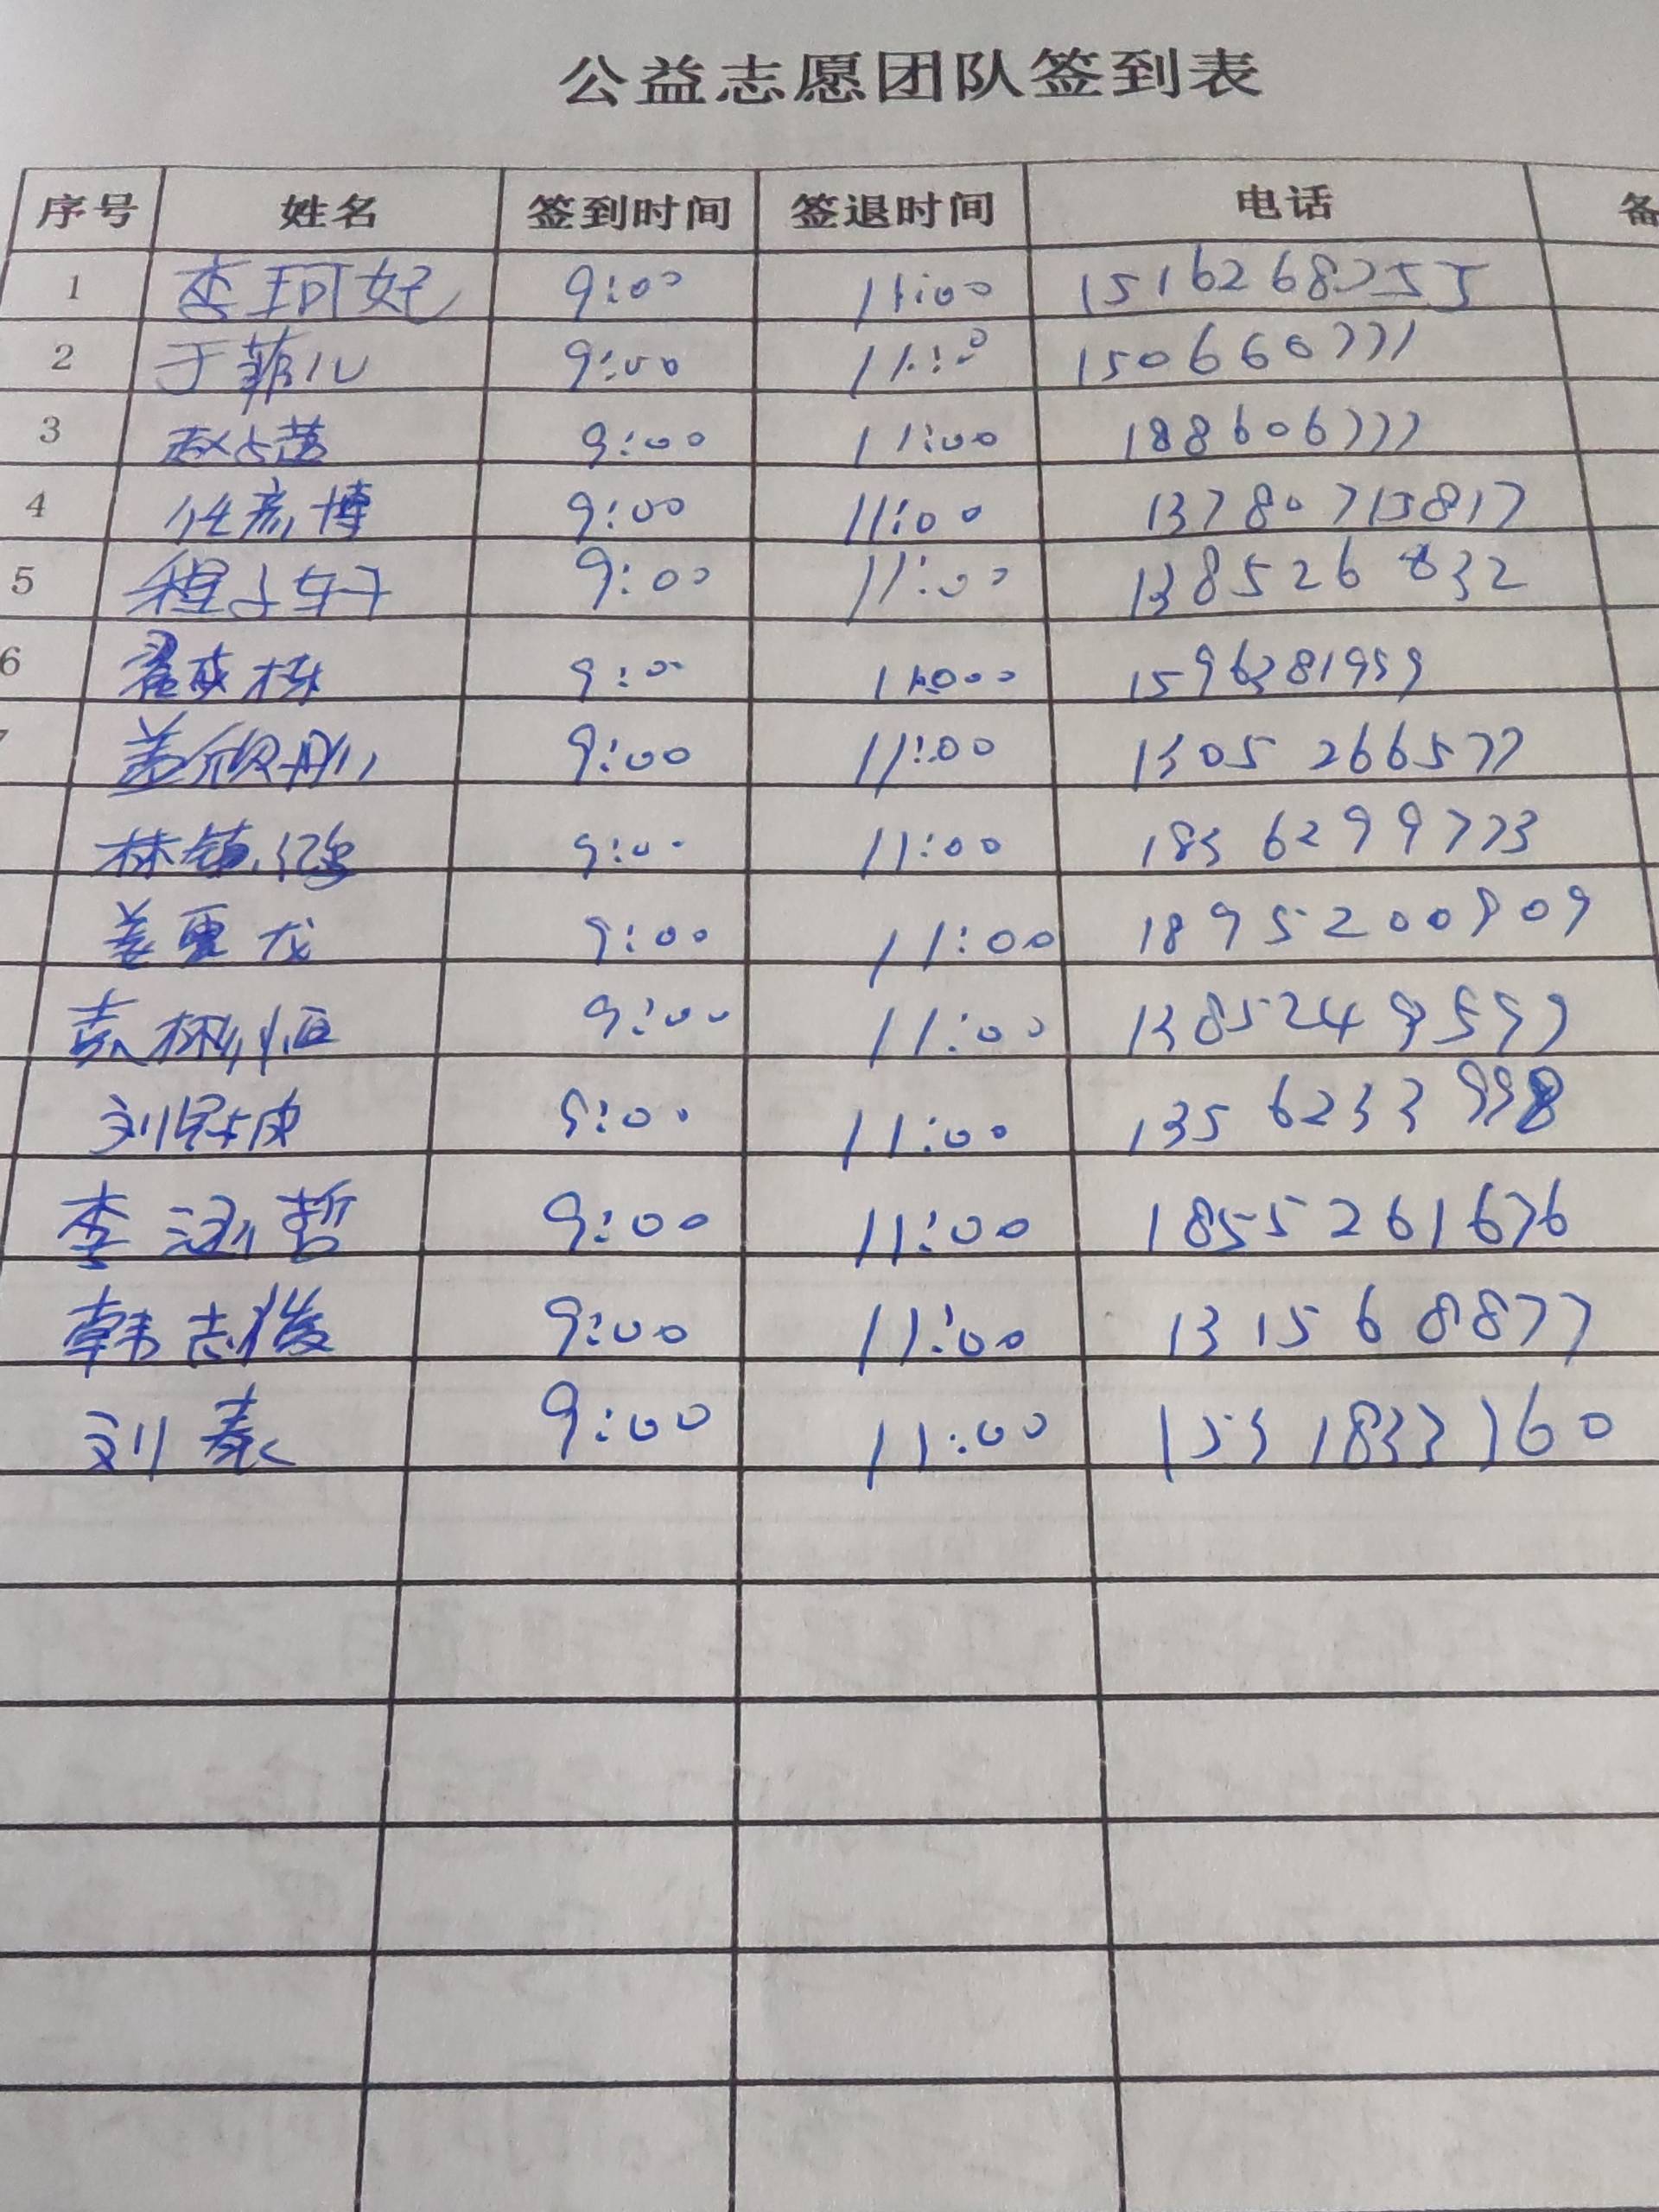 公益志愿团队签到表
序号 姓名 签到时间 签退时间 电话 备
1 李珂妃 9:00 11:00 15162687255
2 于菲儿 9:00 11:00 150660771
3 9:00 11:00 188606777
4 任彦博 9:00 11:00 13780715817
5 程子轩 9:00 11:00 138526832
6 9:00 1596281959
盖欣彤 9:00 11:00 1305266577
林镇鸿 9:00 11:00 1836299773
姜夏龙 9:00 11:00 1895200909
袁树恒 9:00 11:00
9:00 11:00 1356233998
李涵哲 9:00 11:00 1855261676
韩志俊 9:00 11:00 131568877
刘泰 9:00 11:00 1531833760